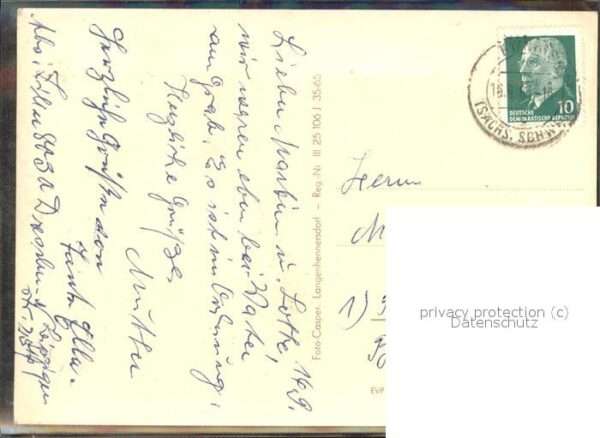 Lieber Martin u. Lotte, 16.9.
wir waren eben bei Vater
am Grab. Es ist in Ordnung.
Herzliche Grüße
Mutter
Herzliche Grüße von
Tante Ella.
Abs: Zilla 8030 Dresden
Foto-Casper, Langenhennersdorf – Reg.-Nr. III 25 106 I 35-65
DEUTSCHE
DEMOKRATISCHE REPUBLIK
10
(SÄCHS. SCHW
Herrn
M
1)
privacy protection (c)
Datenschutz